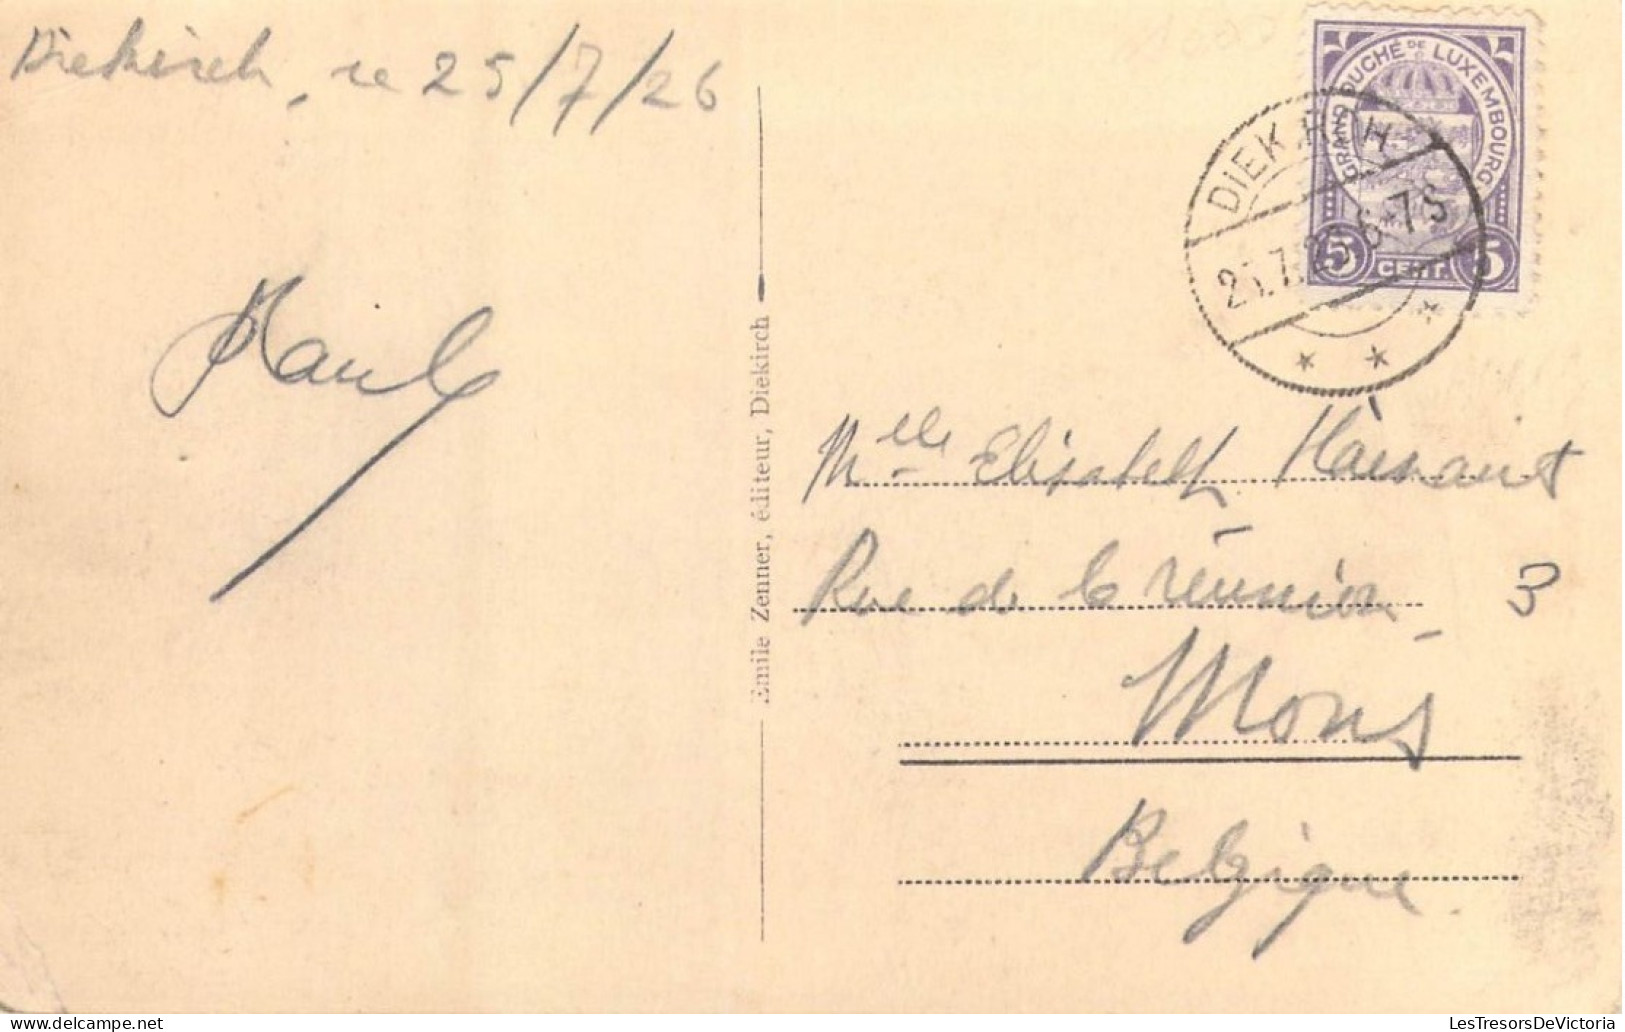 Diekirch, le 25/7/26
GRAND DUCHÉ DE LUXEMBOURG
5 CENT. 5
DIEKIRCH
25.7.26 6-7S
Emile Zenner, éditeur, Diekirch
Mlle Elisabeth
Rue de la réunion 3
Mons
Belgique
LesTresorsDeVictoria